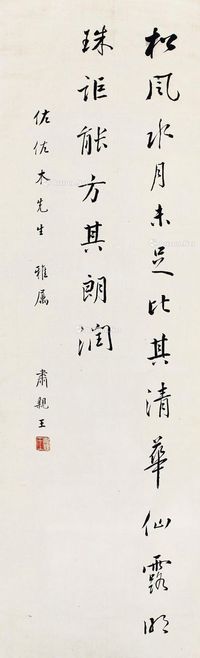 松風水月未足比其清華仙露明
珠詎能方其朗潤
佐佐木先生 雅属
肅親王